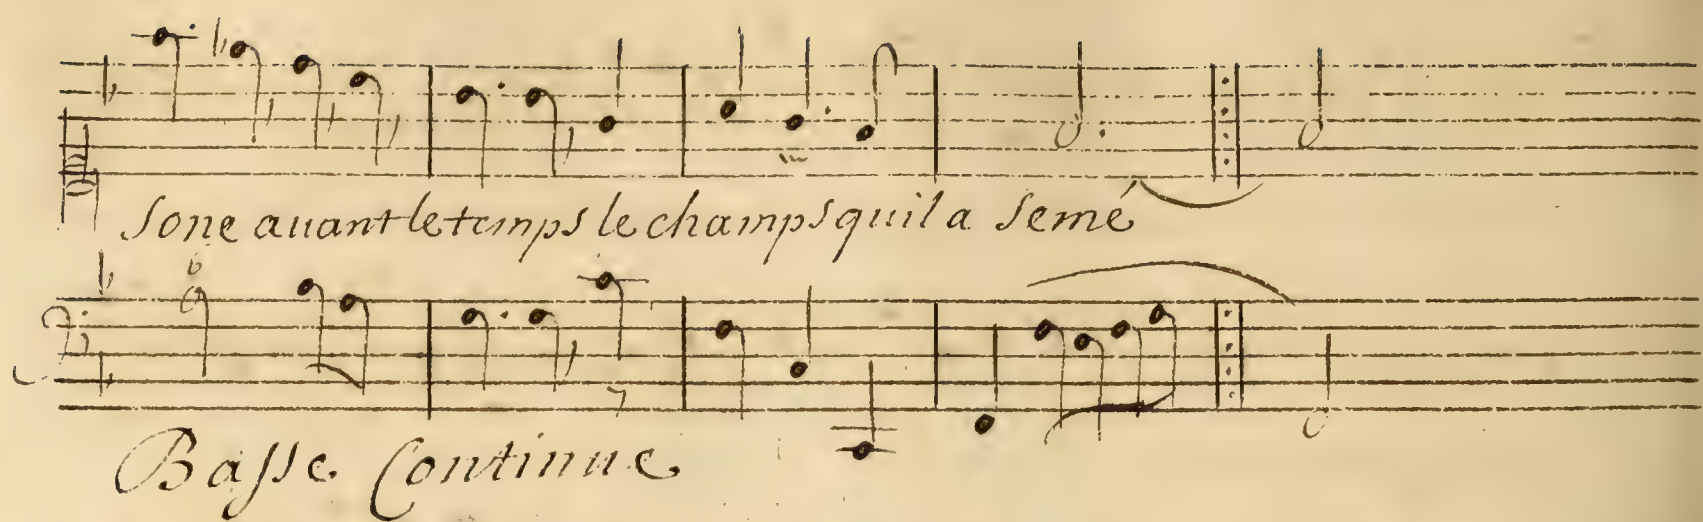 sone auant le temps le champs quil a semé
6
7
Basse Continue